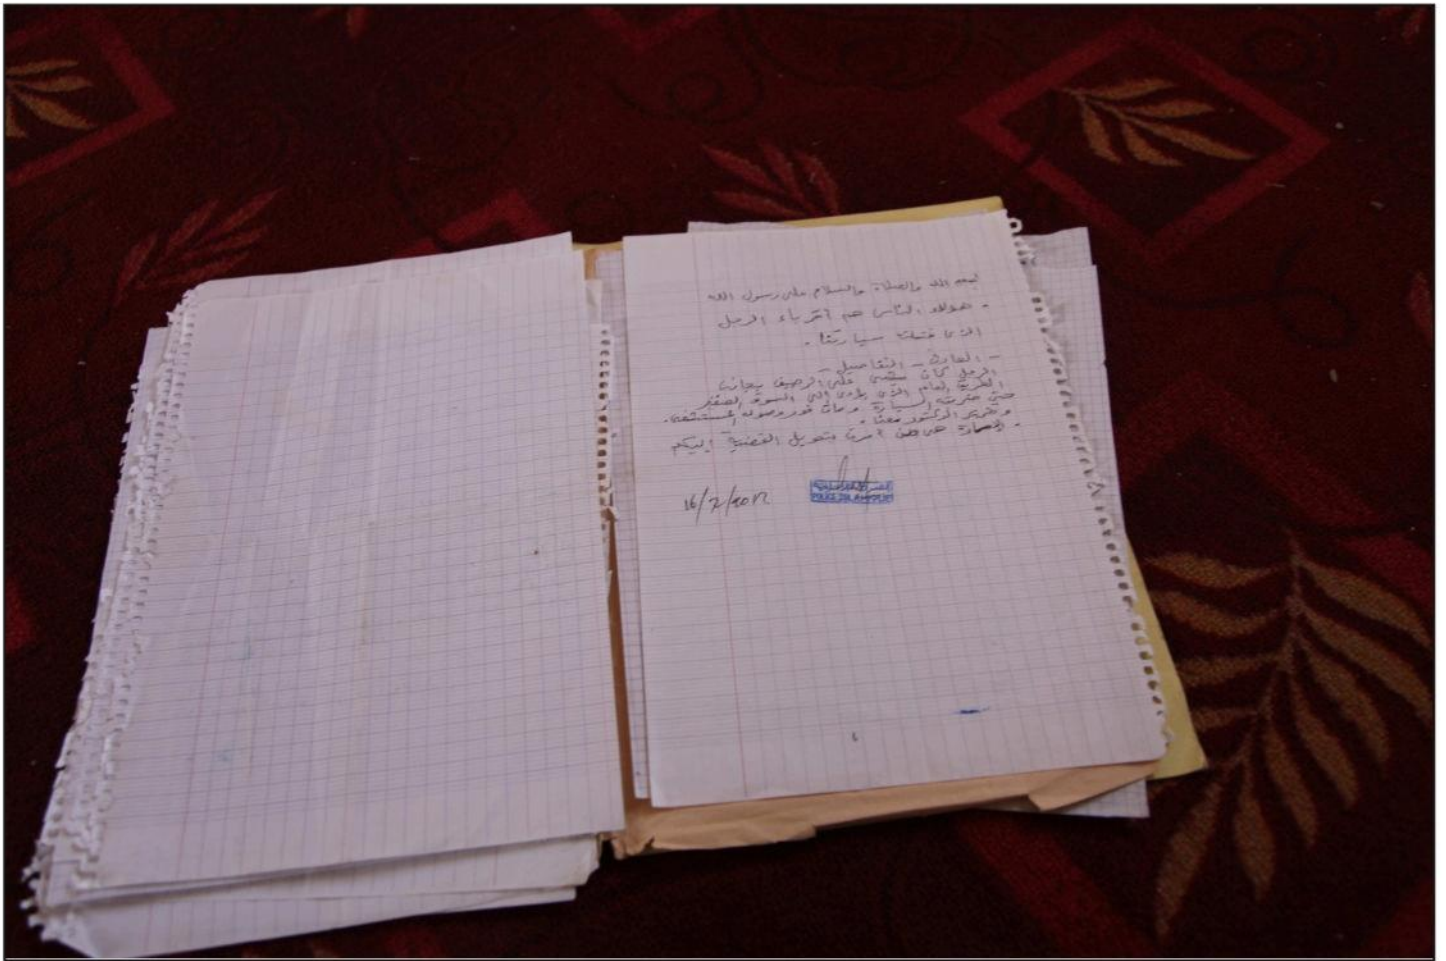 بسم الله والصلاة والسلام على رسول الله
- هؤلاء الناس هم أقرباء الرجل
الذى قتلته سيارتنا .
- الحادث - التفاصيل -
الرجل كان يمشى على الرصيف بجانب
الطريق العام الذى يؤدى إلى السوق الصغير
حتى ضربته السيارة ومات فور وصوله المستشفى .
الدكتور معنا .
بتحويل القضية إليكم
16/7/2012
POLICE ISLAMIQUE